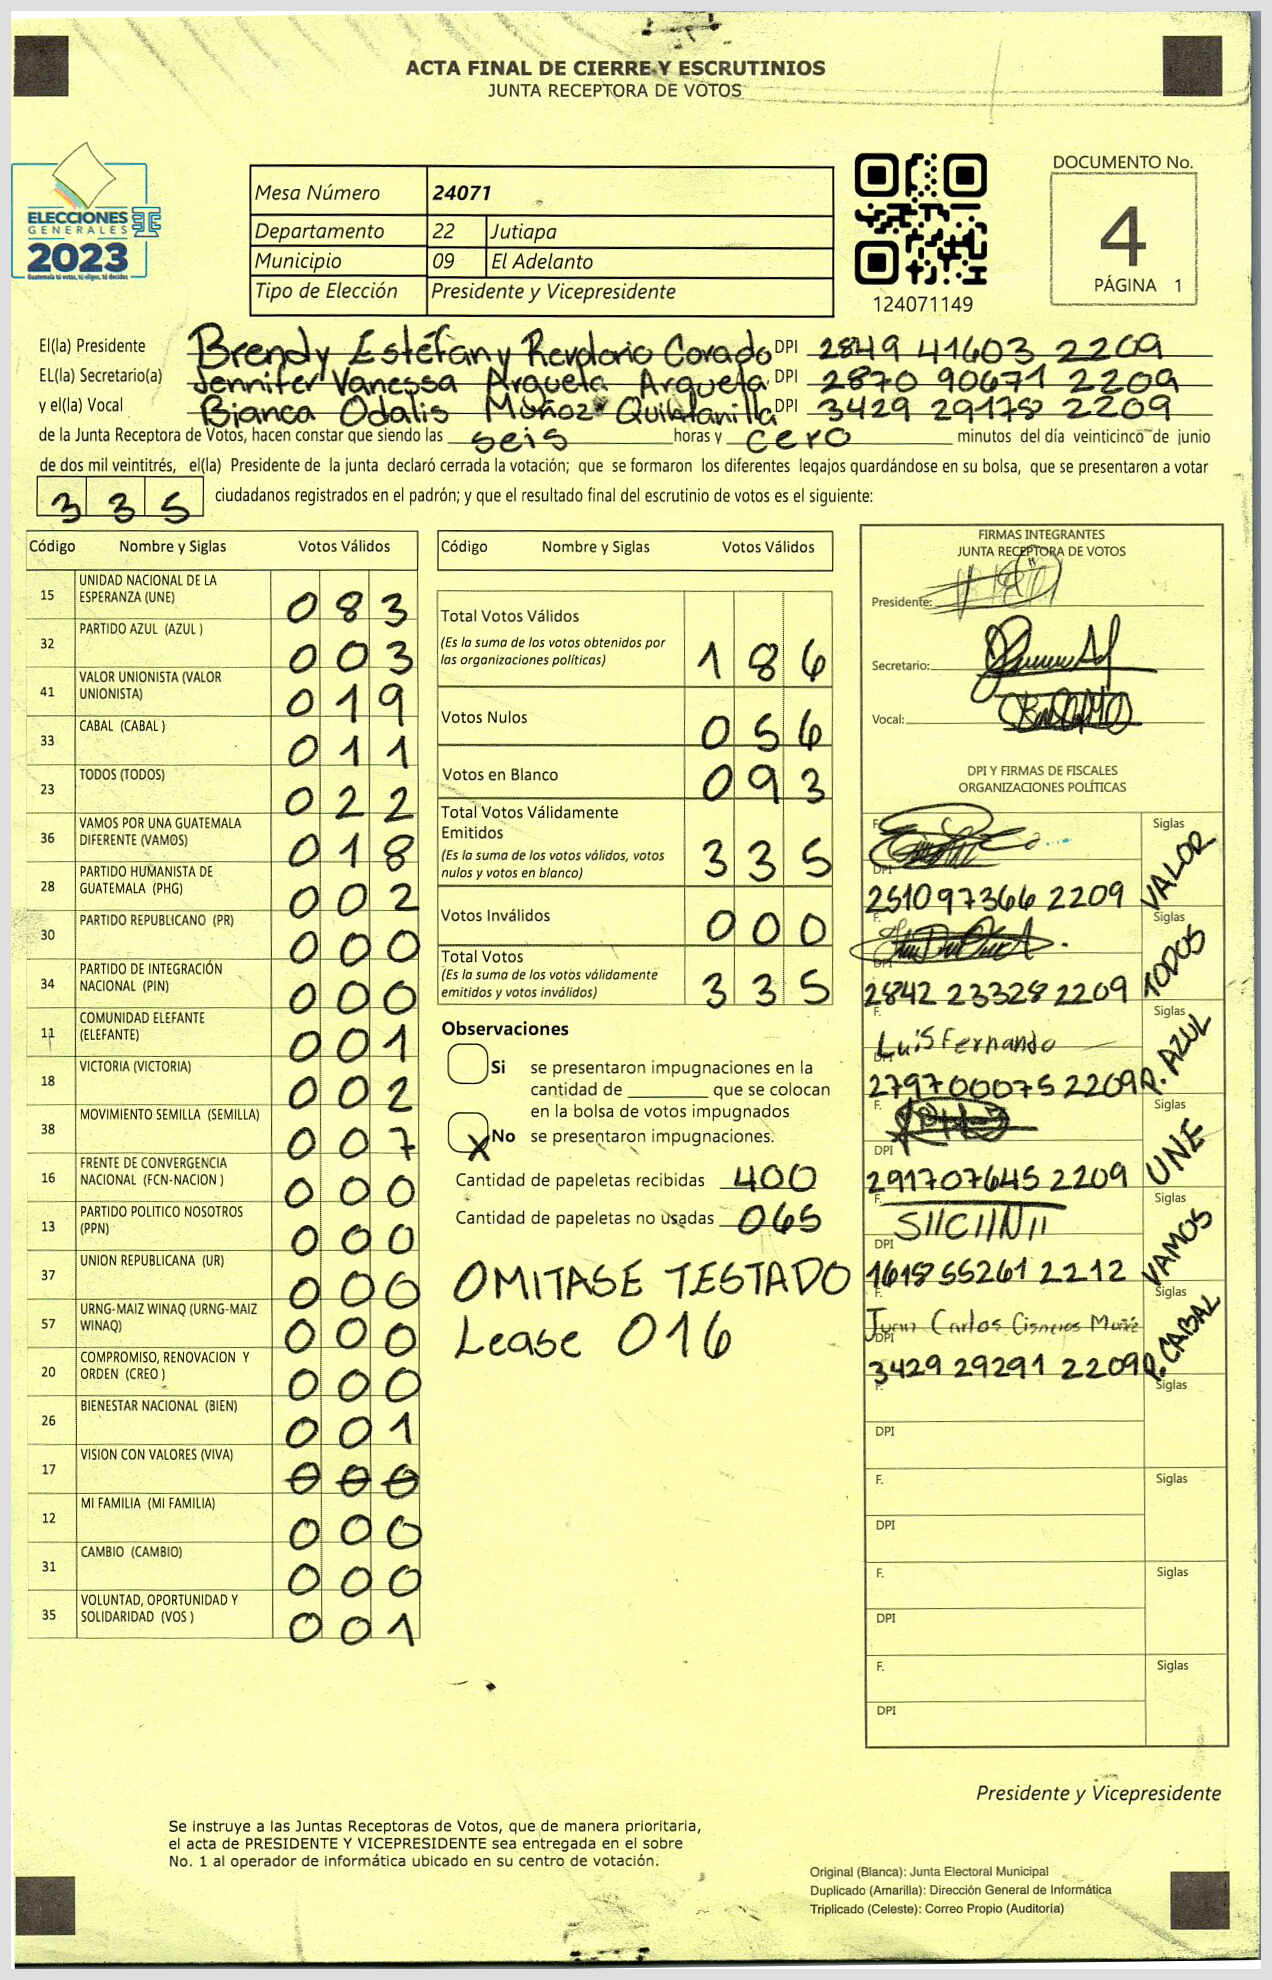 ACTA FINAL DE CIERRE Y ESCRUTINIOS
JUNTA RECEPTORA DE VOTOS
ELECCIONES
GENERALES
2023
Guatemala tú votas, tú eliges, tú decides
Mesa Número 24071
Departamento 22 Jutiapa
Municipio 09 El Adelanto
Tipo de Elección Presidente y Vicepresidente
124071149
DOCUMENTO No.
4
PÁGINA 1
El(la) Presidente Brendy Estéfany Revolorio Corado DPI 2849 41603 2209
EL(la) Secretario(a) Jennifer Vanessa Argueta Argueta DPI 2870 90671 2209
y el(la) Vocal Bianca Odalis Muñoz Quintanilla DPI 3429 29178 2209
de la Junta Receptora de Votos, hacen constar que siendo las seis horas y cero minutos del día veinticinco de junio
de dos mil veintitrés, el(la) Presidente de la junta declaró cerrada la votación; que se formaron los diferentes legajos guardándose en su bolsa, que se presentaron a votar
335 ciudadanos registrados en el padrón; y que el resultado final del escrutinio de votos es el siguiente:
Código Nombre y Siglas Votos Válidos
15 UNIDAD NACIONAL DE LA ESPERANZA (UNE) 083
32 PARTIDO AZUL (AZUL ) 003
41 VALOR UNIONISTA (VALOR UNIONISTA) 019
33 CABAL (CABAL ) 011
23 TODOS (TODOS) 022
36 VAMOS POR UNA GUATEMALA DIFERENTE (VAMOS) 018
28 PARTIDO HUMANISTA DE GUATEMALA (PHG) 002
30 PARTIDO REPUBLICANO (PR) 000
34 PARTIDO DE INTEGRACIÓN NACIONAL (PIN) 000
11 COMUNIDAD ELEFANTE (ELEFANTE) 001
18 VICTORIA (VICTORIA) 002
38 MOVIMIENTO SEMILLA (SEMILLA) 007
16 FRENTE DE CONVERGENCIA NACIONAL (FCN-NACION ) 000
13 PARTIDO POLITICO NOSOTROS (PPN) 000
37 UNION REPUBLICANA (UR) 000
57 URNG-MAIZ WINAQ (URNG-MAIZ WINAQ) 000
20 COMPROMISO, RENOVACION Y ORDEN (CREO ) 000
26 BIENESTAR NACIONAL (BIEN) 001
17 VISION CON VALORES (VIVA) 000
12 MI FAMILIA (MI FAMILIA) 000
31 CAMBIO (CAMBIO) 000
35 VOLUNTAD, OPORTUNIDAD Y SOLIDARIDAD (VOS ) 001
Código Nombre y Siglas Votos Válidos
Total Votos Válidos
(Es la suma de los votos obtenidos por las organizaciones políticas) 186
Votos Nulos 056
Votos en Blanco 093
Total Votos Válidamente Emitidos
(Es la suma de los votos válidos, votos nulos y votos en blanco) 335
Votos Inválidos 000
Total Votos
(Es la suma de los votos válidamente emitidos y votos inválidos) 335
Observaciones
Si se presentaron impugnaciones en la
cantidad de ________ que se colocan
en la bolsa de votos impugnados
X No se presentaron impugnaciones.
Cantidad de papeletas recibidas 400
Cantidad de papeletas no usadas 065
OMITASE TESTADO
Lease 016
FIRMAS INTEGRANTES
JUNTA RECEPTORA DE VOTOS
Presidente:
Secretario:
Vocal:
DPI Y FIRMAS DE FISCALES
ORGANIZACIONES POLÍTICAS
F. Siglas VALOR
DPI 2510 97366 2209
F. Siglas TODOS
DPI 2842 23328 2209
F. Luis Fernando Siglas P. AZUL
DPI 2797 00075 2209
F. Siglas UNE
DPI 2917 07645 2209
F. Siglas VAMOS
DPI 1618 55261 2212
F. Juan Carlos Cisneros Muñoz Siglas P. CABAL
DPI 3429 29291 2209
F. Siglas
DPI
F. Siglas
DPI
F. Siglas
DPI
F. Siglas
DPI
Presidente y Vicepresidente
Se instruye a las Juntas Receptoras de Votos, que de manera prioritaria,
el acta de PRESIDENTE Y VICEPRESIDENTE sea entregada en el sobre
No. 1 al operador de informática ubicado en su centro de votación.
Original (Blanca): Junta Electoral Municipal
Duplicado (Amarilla): Dirección General de Informática
Triplicado (Celeste): Correo Propio (Auditoría)